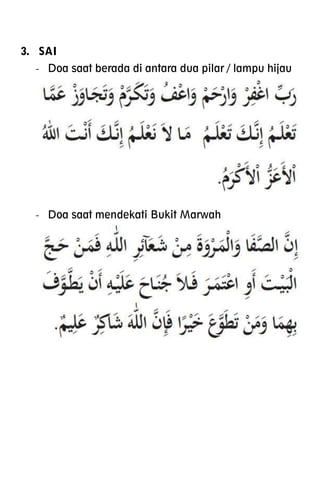 3. SAI
- Doa saat berada di antara dua pilar / lampu hijau
رَبِّ اغْفِرْ وَارْحَمْ وَاعْفُ وَتَكَرَّمْ وَتَجَاوَزْ عَمَّا
تَعْلَمُ إِنَّكَ تَعْلَمُ مَا لَا نَعْلَمُ إِنَّكَ أَنْتَ اللهُ
الْأَعَزُّ الْأَكْرَمُ.
- Doa saat mendekati Bukit Marwah
إِنَّ الصَّفَا وَالْمَرْوَةَ مِنْ شَعَآئِرِ اللهِ فَمَنْ حَجَّ
الْبَيْتَ أَوِ اعْتَمَرَ فَلَا جُنَاحَ عَلَيْهِ أَنْ يَطَّوَّفَ
بِهِمَا وَمَنْ تَطَوَّعَ خَيْرًا فَإِنَّ اللهَ شَاكِرٌ عَلِيمٌ.